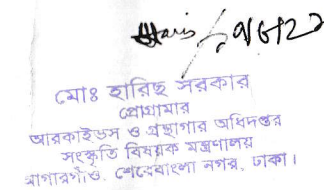 মোঃ হারিছ সরকার
প্রোগ্রামার
আরকাইভস ও গ্রন্থাগার অধিদপ্তর
সংস্কৃতি বিষয়ক মন্ত্রণালয়
আগারগাঁও, শেরেবাংলা নগর, ঢাকা।